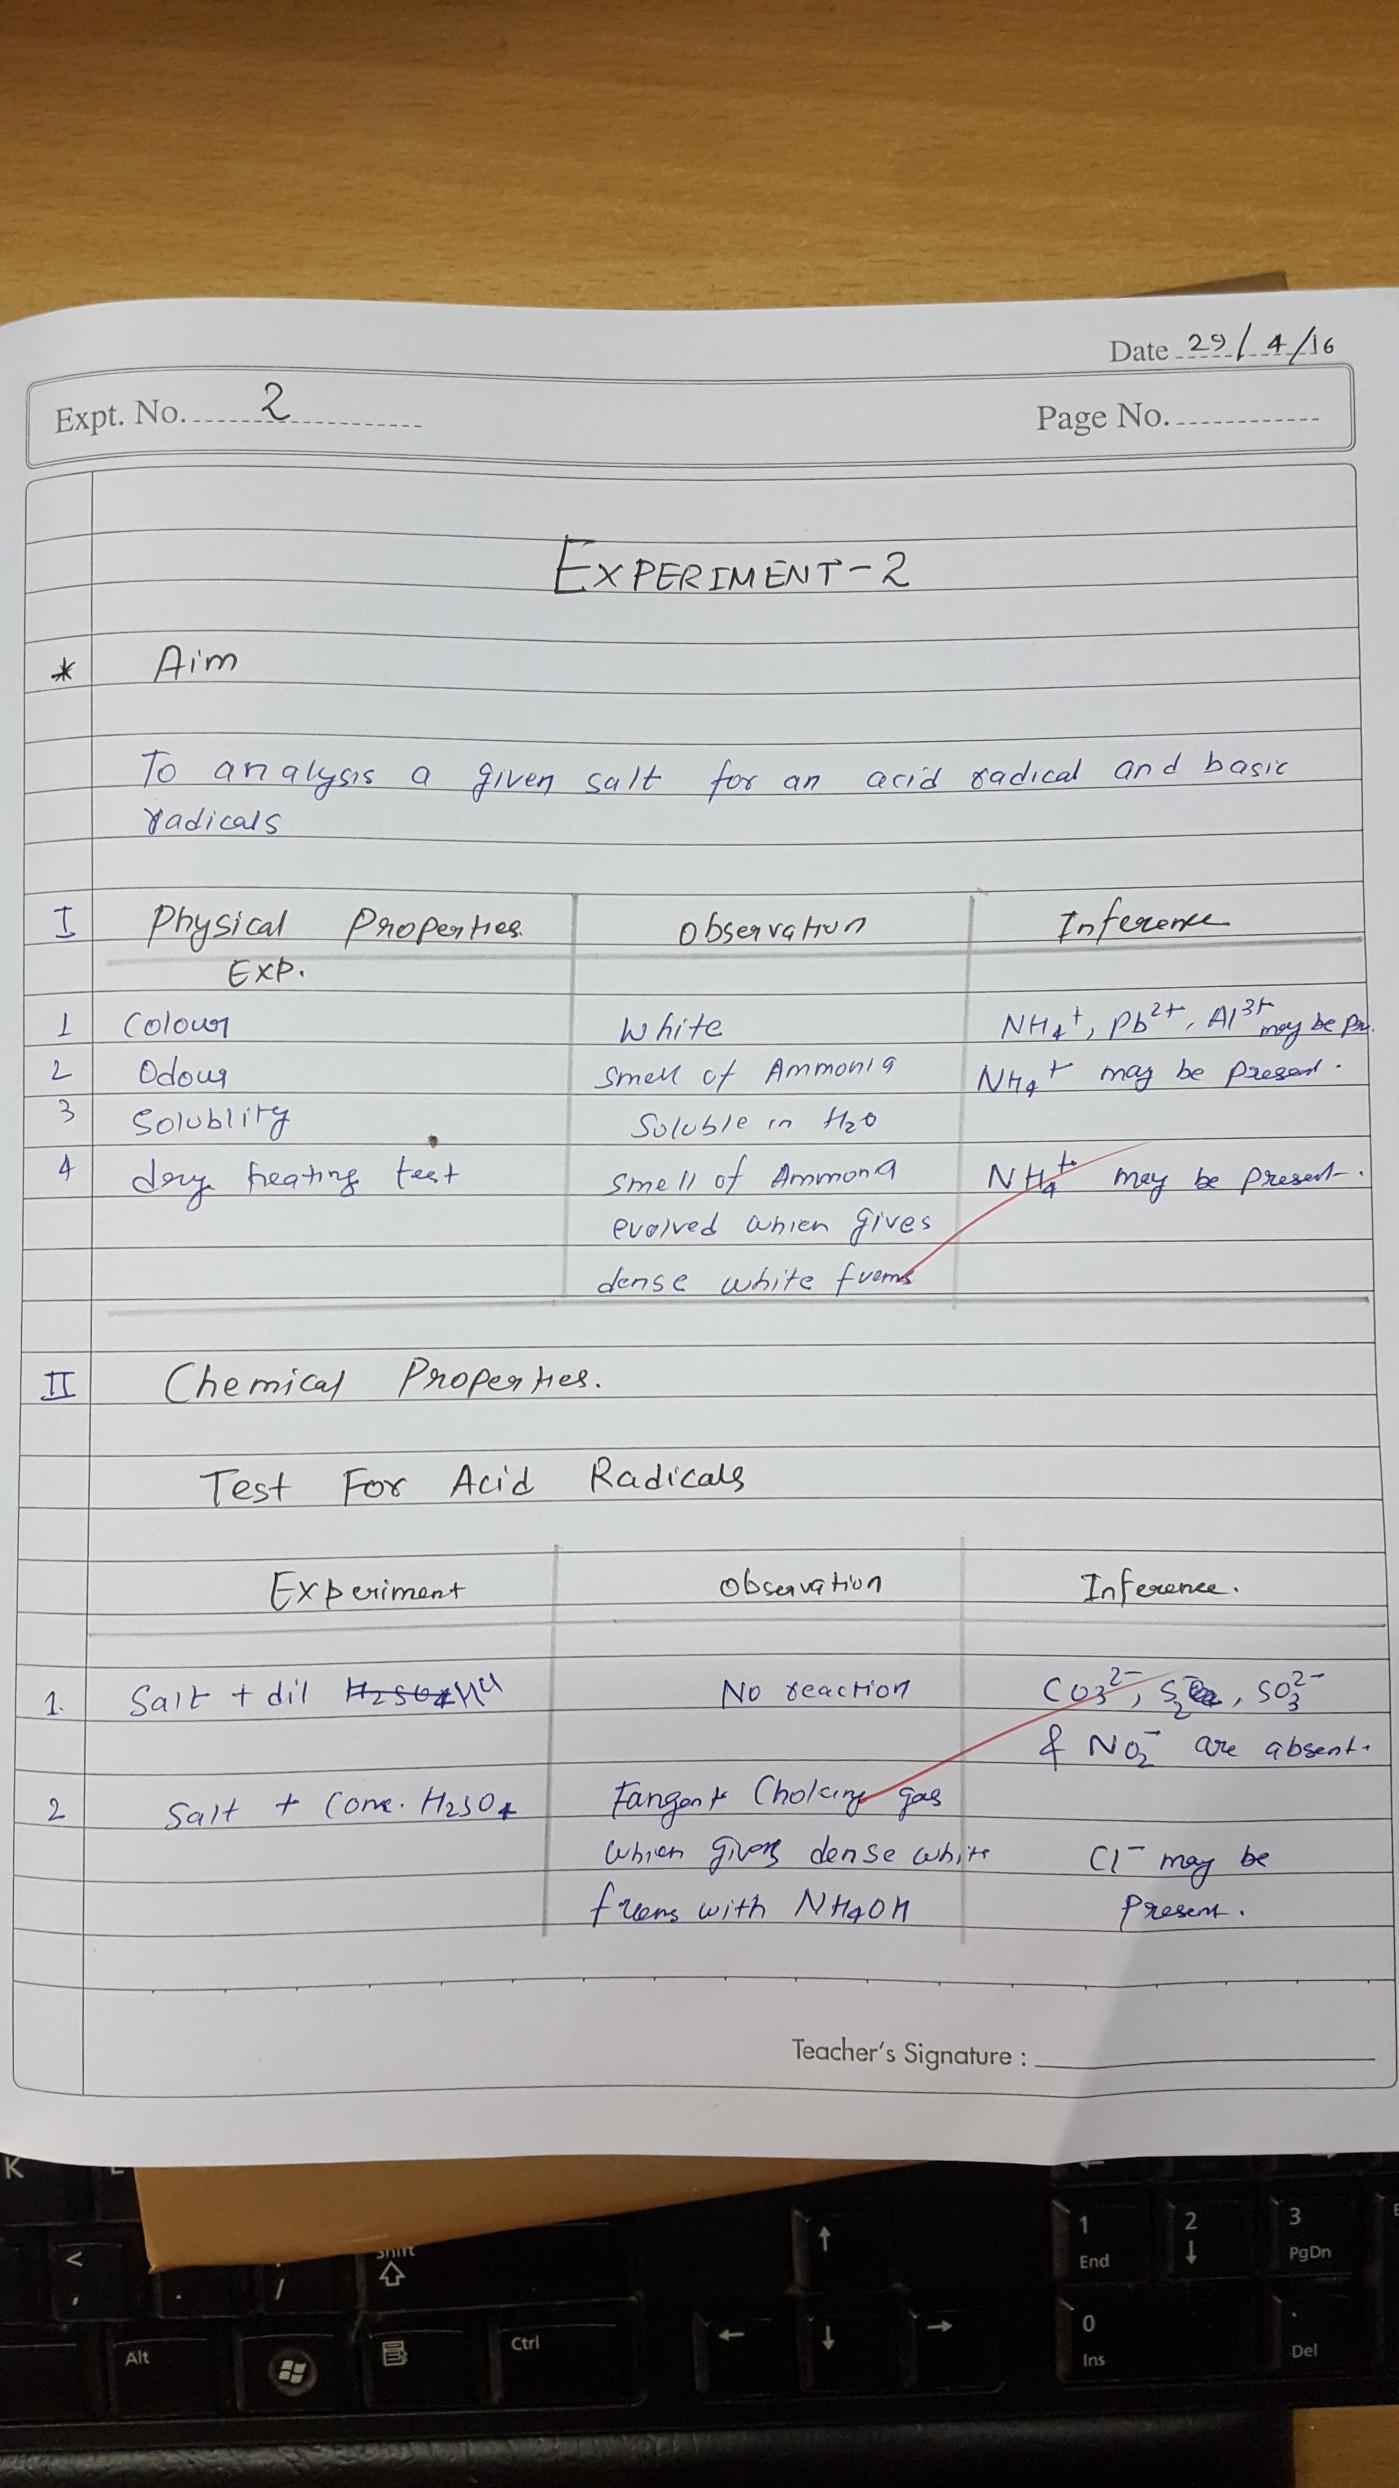 Date 29/4/16
Expt. No. 2
Page No.
EXPERIMENT-2
* Aim
To analysis a given salt for an acid radical and basic
radicals
I Physical Properties. Observation Inference
Exp.
1 Colour White NH4+, Pb2+, Al3+ may be Pr.
2 Odour Smell of Ammonia NH4+ may be Present.
3 Solublity Soluble in H2O
4 dry heating test Smell of Ammona NH4+ may be Present.
evolved which gives
dense white fuems
II Chemical Properties.
Test For Acid Radicals
Experiment Observation Inference.
1. Salt + dil H2SO4 HCl No reaction CO3 2-, S2, SO3 2-
& NO2- are absent.
2 Salt + Conc. H2SO4 Fangent Choking gas
which gives dense white Cl- may be
fuems with NH4OH Present.
Teacher's Signature :
K
L
<
,
.
/
Shift
Alt
Ctrl
1
End
2
3
PgDn
0
Ins
.
Del